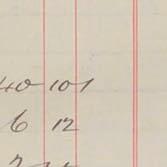 40 101
6 12